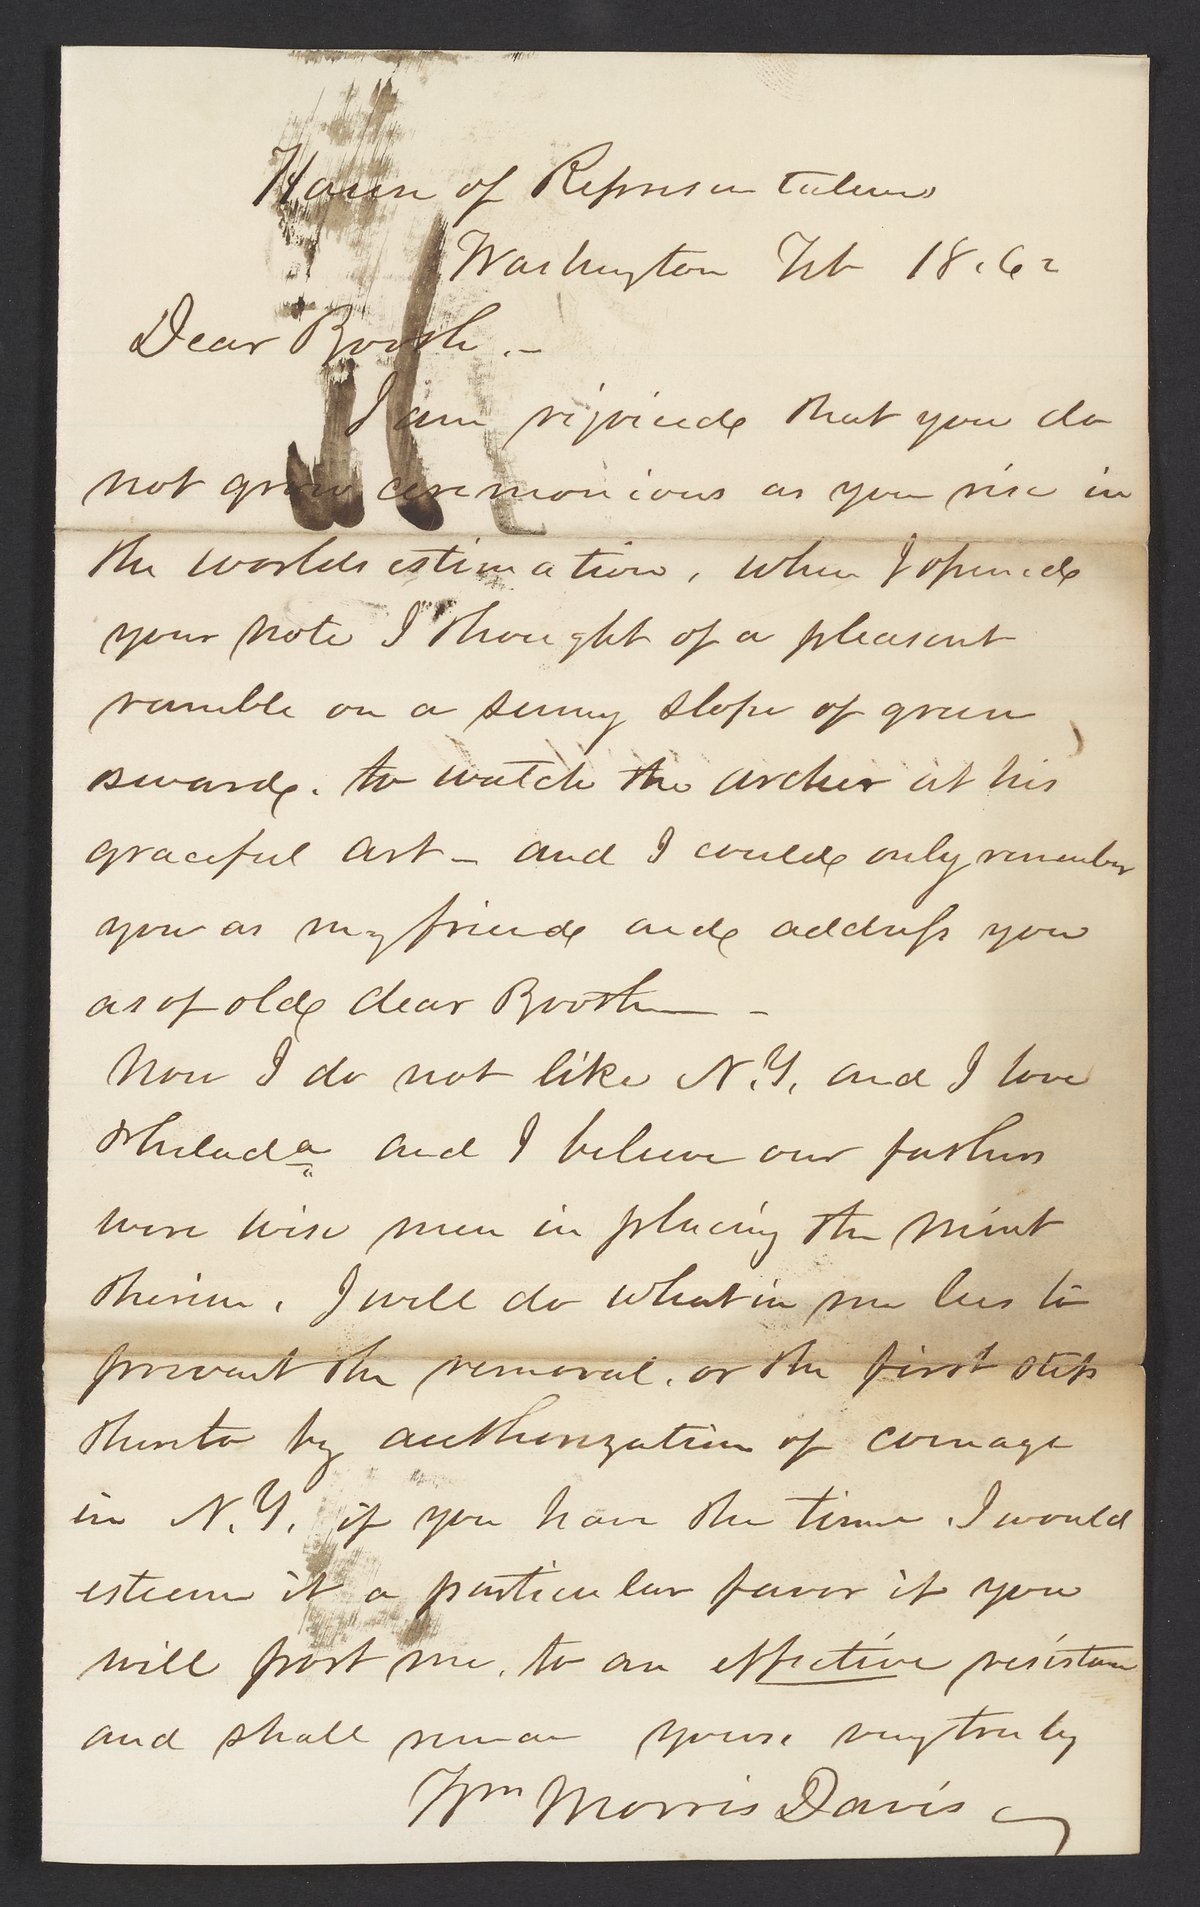 House of Representatives
Washington Feb 18. 62
Dear Booth. –
I am rejoiced that you do
not grow ceremonious as you rise in
the worlds estimation, when I opened
your note I thought of a pleasant
ramble on a sunny slope of green
sward. to watch the archer at his
graceful art – and I could only remember
you as my friend and address you
as of old dear Booth –
Now I do not like N.Y. and I love
Philada and I believe our fathers
were wise men in placing the mint
therein. I will do what in me lies to
prevent the removal. or the first step
thereto by authorization of coinage
in N.Y. if you have the time. I would
esteem it a particular favor if you
will post me, to an effective resistance
and shall remain yours very truly
Wm Morris Davis